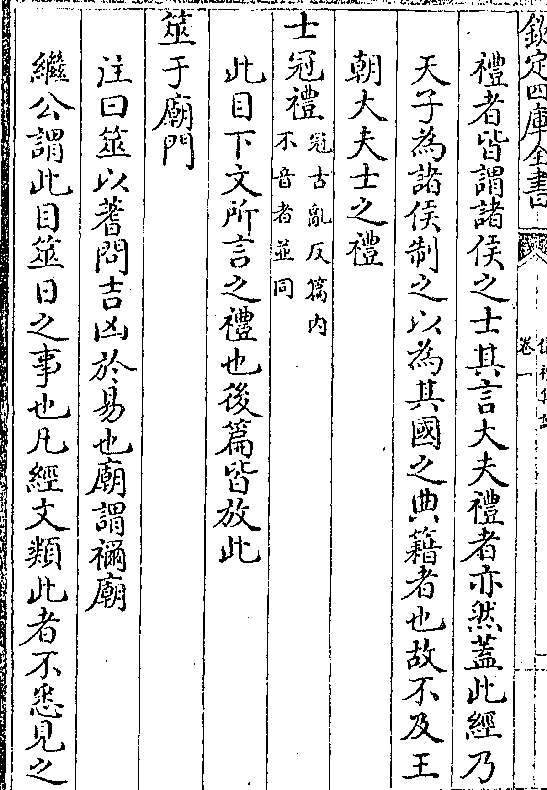 欽定四庫全書
卷一
禮者皆謂諸侯之士其言大夫禮者亦然蓋此經乃
天子為諸侯制之以為其國之典籍者也故不及王
朝大夫士之禮
士冠禮冠古亂反篇内
不音者並同
此目下文所言之禮也後篇皆放此
筮于廟門
注曰筮以蓍問吉凶於易也廟謂禰廟
繼公謂此目筮日之事也凡經文類此者不悉見之